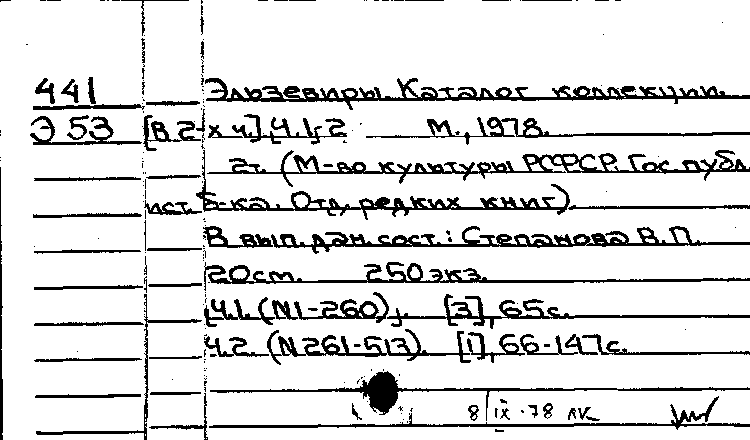 441 Эльзевиры. Каталог коллекции.
Э 53 [В 2-х ч.]. [Ч.1], 2 М., 1978.
2т. (М-во культуры РСФСР. Гос. публ.
ист. б-ка. Отд. редких книг).
В вып. дан. сост.: Степанова В.П.
20см. 250 экз.
[Ч.1. (N1-260)]. [3], 65с.
Ч.2. (N261-513). [1], 66-147с.
8/IX-78